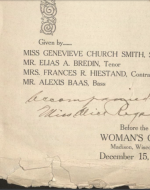 Given by
MISS GENEVIEVE CHURCH SMITH, S
MR. ELIAS A. BREDIN, Tenor
MRS. FRANCES R. HIESTAND, Contra
MR. ALEXIS BAAS, Bass
accompanied
Miss
Before the
WOMAN'S C
Madison, Wisc
DECEMBER 15,